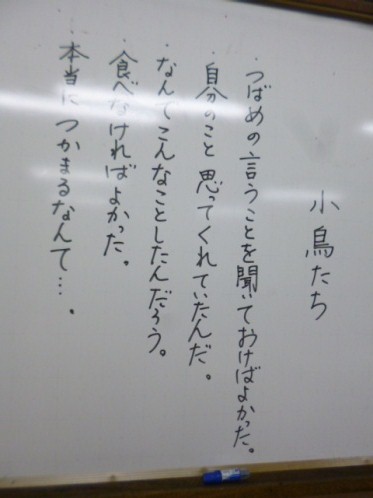 小鳥たち
・つばめの言うことを聞いておけばよかった。
・自分のこと思ってくれていたんだ。
・なんてこんなことしたんだろう。
・食べなければよかった。
・本当につかまるなんて…。